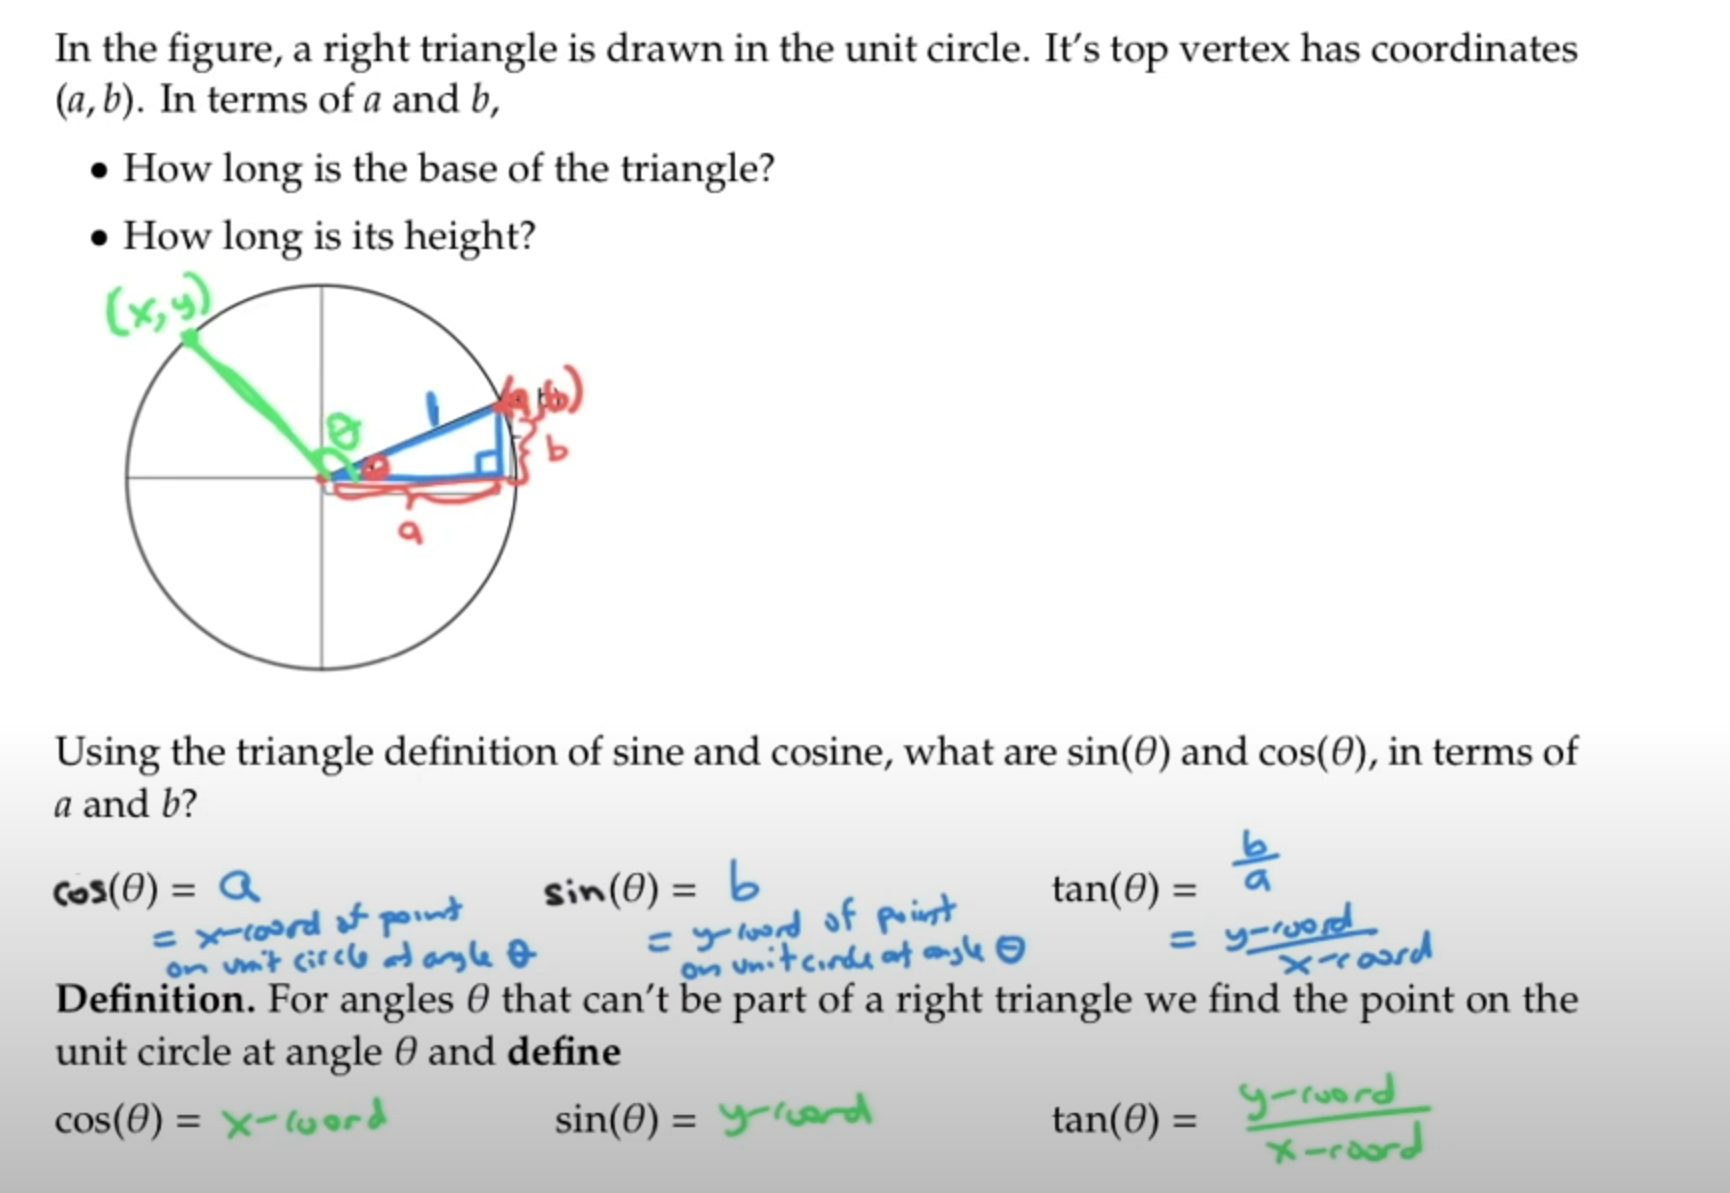 In the figure, a right triangle is drawn in the unit circle. It's top vertex has coordinates
(a, b). In terms of a and b,
• How long is the base of the triangle?
• How long is its height?
(x, y)
(a, b)
1
θ
θ
b
a
Using the triangle definition of sine and cosine, what are sin(θ) and cos(θ), in terms of
a and b?
cos(θ) = a sin(θ) = b tan(θ) = b/a
= x-coord of point = y-coord of point = y-coord/x-coord
on unit circle at angle θ on unit circle at angle θ
Definition. For angles θ that can't be part of a right triangle we find the point on the
unit circle at angle θ and define
cos(θ) = x-coord sin(θ) = y-coord tan(θ) = y-coord/x-coord